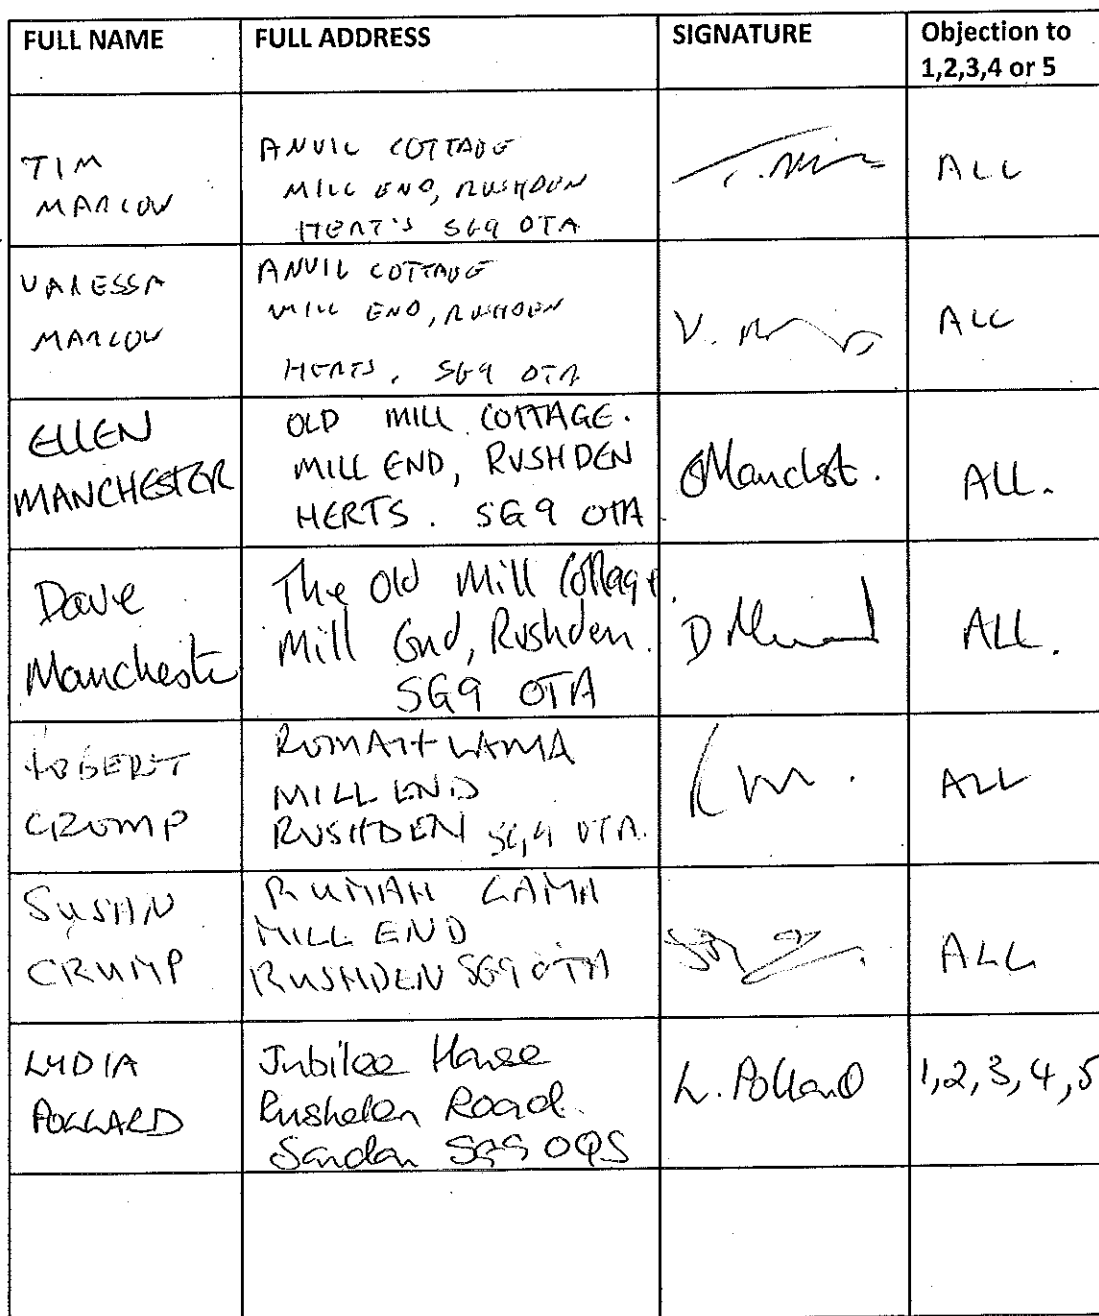 FULL NAME
FULL ADDRESS
SIGNATURE
Objection to
1,2,3,4 or 5
TIM
MARLOW
ANVIL COTTAGE
MILL END, RUSHDEN
HERT'S SG9 0TA
ALL
VANESSA
MARLOW
ANVIL COTTAGE
MILL END, RUSHDEN
HERTS, SG9 0TA
V.
ALL
ELLEN
MANCHESTER
OLD MILL COTTAGE.
MILL END, RUSHDEN
HERTS. SG9 0TA
ALL.
Dave
Manchester
The Old Mill Cottage
Mill End, Rushden.
SG9 0TA
D
ALL.
ROBERT
CRUMP
RUMAH LAMA
MILL END
RUSHDEN SG9 0TA.
ALL
SUSAN
CRUMP
RUMAH LAMA
MILL END
RUSHDEN SG9 0TA
ALL
LYDIA
POLLARD
Jubilee House
Rushden Road.
Sandon SG9 0QS
L. Pollard
1,2,3,4,5